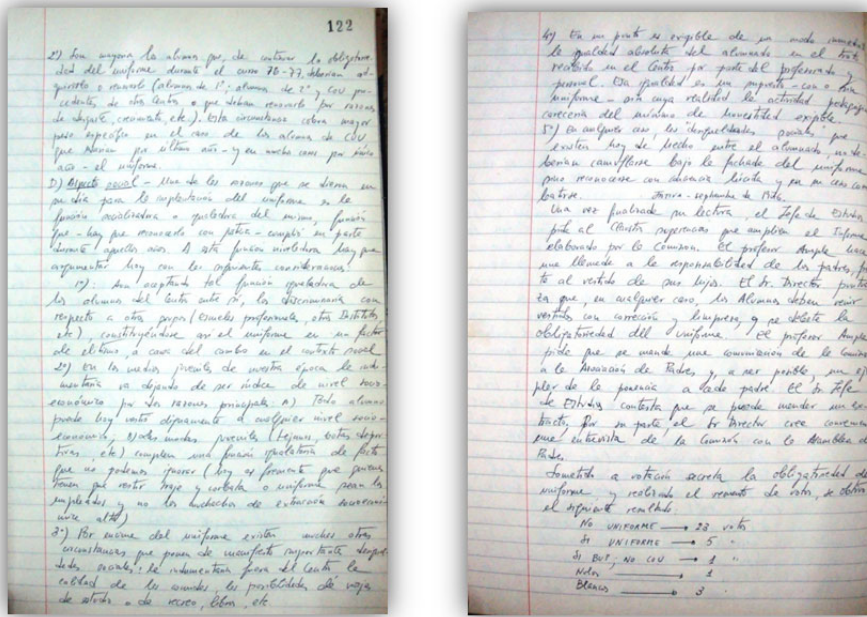 122
2º) Son mayoría los alumnos que, de continuar la obligatorie-
dad del uniforme durante el curso 76-77, deberían ad-
quirirlo o renovarlo (alumnos de 1º; alumnos de 2º y COU pro-
cedentes de otros Centros o que deban renovarlo por razones
de desgaste, crecimiento, etc.). Esta circunstancia cobra mayor
peso específico en el caso de los alumnos de COU,
que llevarían por último año - y en muchos casos por único
año - el uniforme.
D) Aspecto social - Una de las razones que se dieron en
su día para la implantación del uniforme es la
función socializadora o igualadora del mismo, función
que - hay que reconocerlo con justicia - cumplió en parte
durante aquellos años. A esta función niveladora hay que
argumentar hoy con las siguientes consideraciones:
1º): Aun aceptando tal función igualadora de
los alumnos del Centro entre sí, los discriminaría con
respecto a otros grupos (escuelas profesionales, otros Institutos,
etc) constituyéndose así el uniforme en un factor
de elitismo, a causa del cambio en el contexto social
2º) En los medios juveniles de nuestra época la indu-
mentaria va dejando de ser índice de nivel socio-
económico por dos razones principales: A) Todo alumno
puede hoy vestir dignamente a cualquier nivel socio-
económico, modas juveniles (tejanos, botas depor-
tivas, etc) cumplen una función igualatoria de facto
que no podemos ignorar (hoy es frecuente que quienes
tienen que vestir traje y corbata o uniforme sean los
empleados y no los muchachos de extracción socioeconó-
mica alta)
3º) Por encima del uniforme existen muchas otras
circunstancias que ponen de manifiesto importantes desigual-
dades sociales: la indumentaria fuera del Centro, la
calidad de las viviendas, las posibilidades de viajes
de estudio o de recreo, libros, etc
4º) En un punto es exigible de un modo
la igualdad absoluta del alumnado en el trato
recibido en el Centro por parte del profesorado y
personal. Esa igualdad es un supuesto - con o sin
uniforme - sin cuya realidad la actividad pedagógica
carecería del mínimo de honestidad exigible.
5º) En cualquier caso, las "desigualdades sociales" que
existen hoy de hecho entre el alumnado, no de-
berían camuflarse bajo la fachada del uniforme
sino reconocerse con
septiembre de 1976.
Una vez finalizada su lectura, el Jefe de Estudios
pide al Claustro sugerencias que amplíen el Informe
elaborado por la Comisión. El profesor hace
una llamada a la responsabilidad de los padres,
al vestido de sus hijos. El Sr. Director
que, en cualquier caso, los Alumnos deben venir
vestidos con corrección y limpieza, y se debate la
obligatoriedad del uniforme. El profesor
pide que se mande una comunicación de la Comisión
a la Asociación de Padres y, a ser posible, un ejem-
plar de la ponencia a cada padre. El Sr. Jefe
de Estudios contesta que se puede mandar un ex-
tracto. Por su parte, el Sr Director cree conveniente
una entrevista de la Comisión con la Asamblea de
Padres.
Sometida a votación secreta la obligatoriedad del
uniforme, y realizado el recuento de votos, se obtiene
el siguiente resultado:
NO UNIFORME → 23 votos
SI UNIFORME → 5 "
SI BUP; NO COU → 1 "
Nulos → 1
Blancos → 3